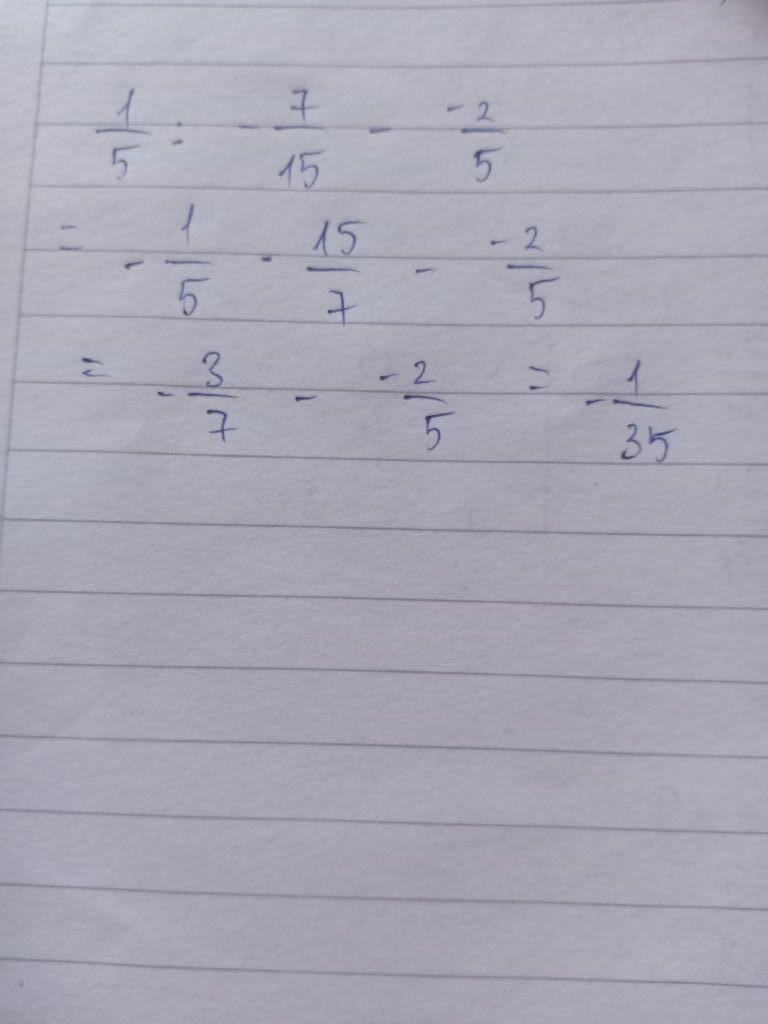 1/5 : - 7/15 - -2/5
= - 1/5 · 15/7 - -2/5
= - 3/7 - -2/5 = - 1/35